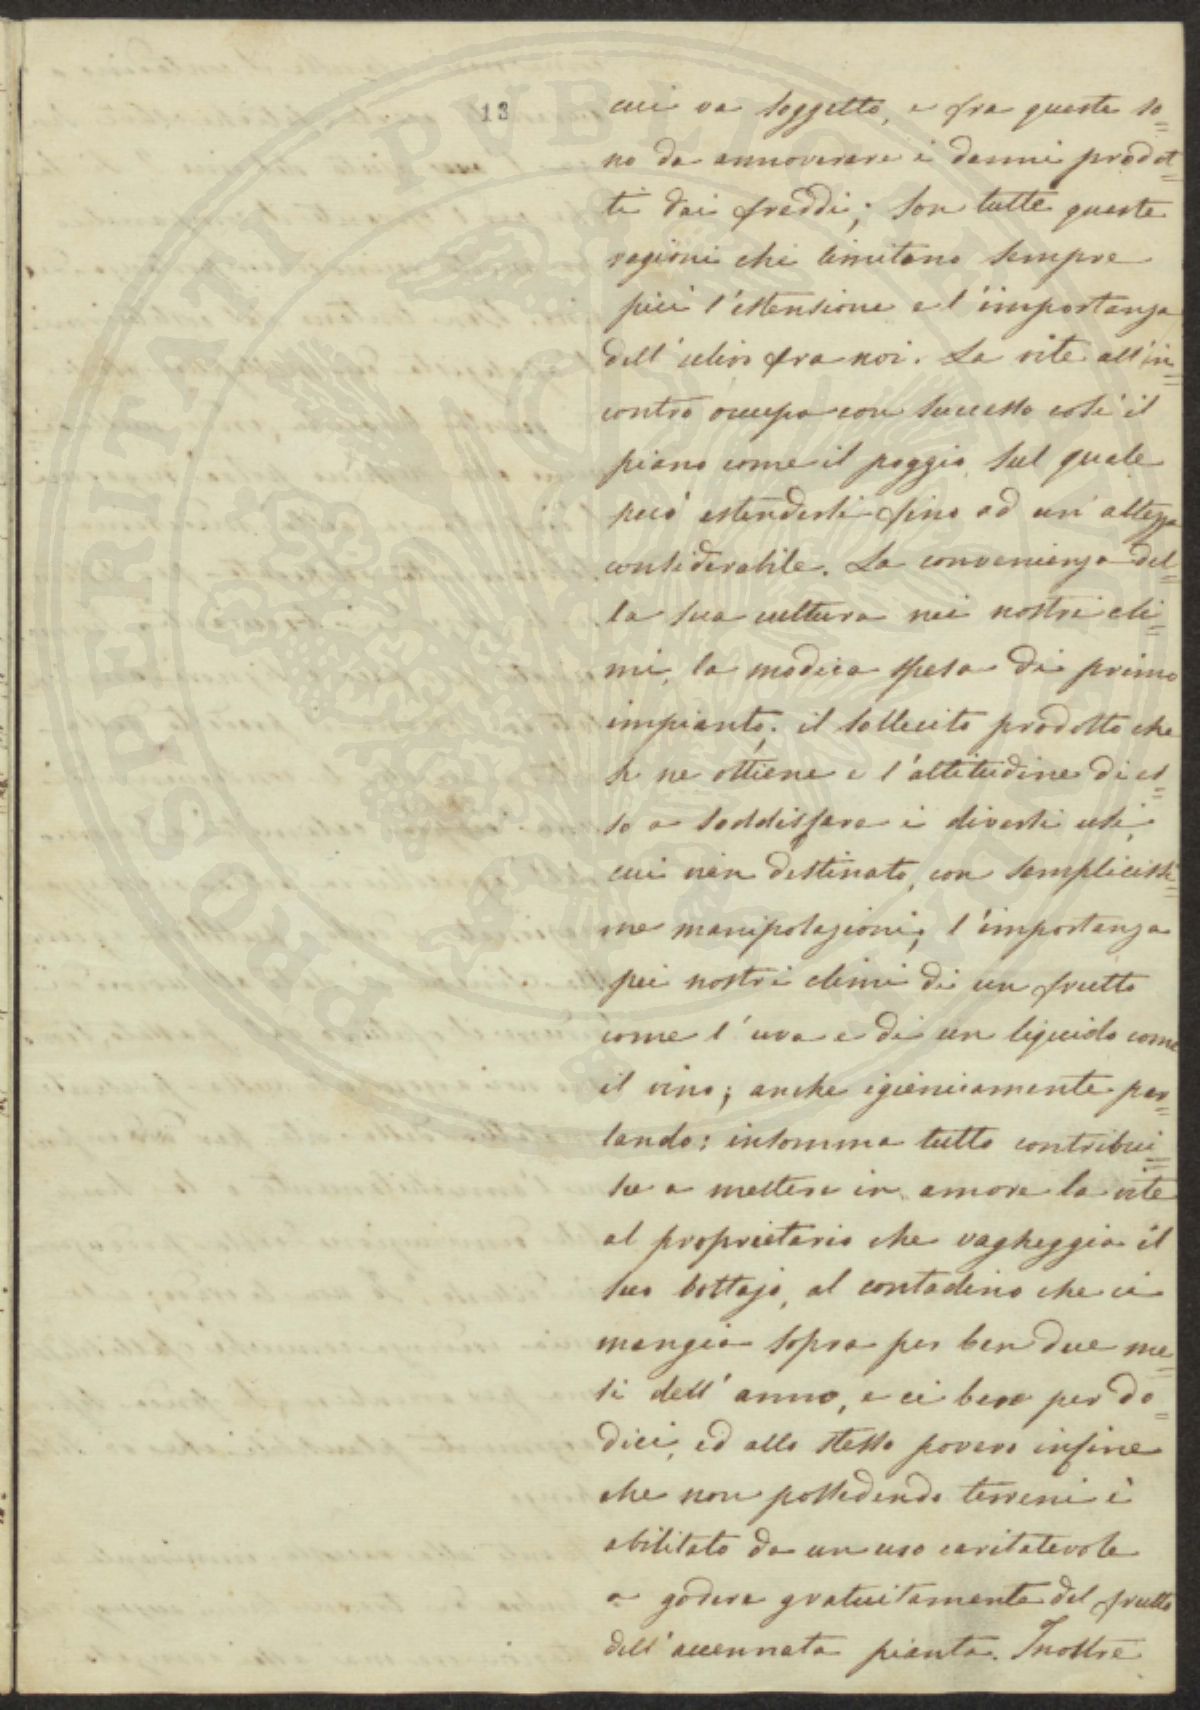 13
cui va soggetto, e fra queste so=
no da annoverare i danni prodot=
ti dai freddi; son tutte queste
ragioni che limitano sempre
più l'estensione e l'importanza
dell'ulivo fra noi. La vite all'in=
contro occupa con successo così il
piano come il poggio, sul quale
può estendersi fino ad un'altezza
considerabile. La convenienza del=
la sua cultura nei nostri cli=
mi, la modica spesa di primo
impianto; il sollecito prodotto che
se ne ottiene e l'attitudine di es=
so a soddisfare i diversi usi,
cui vien destinato, con semplicissi=
me manipolazioni; l'importanza
pei nostri climi di un frutto
come l'uva e di un liquido come
il vino; anche igienicamente par=
lando: insomma tutto contribui=
sce a mettere in amore la vite
al proprietario che vagheggia il
suo bottajo, al contadino che ci
mangia sopra per ben due me=
si dell'anno, e ci beve per do=
dici, ed allo stesso povero infine
che non possedendo terreni è
abilitato da un uso caritatevole
a godere gratuitamente del frutto
dell'accennata pianta. Inoltre
PROSPERITATI PUBLICAE